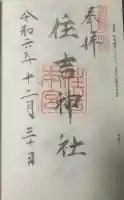 奉拝
住吉神社
令和六年十二月三十日